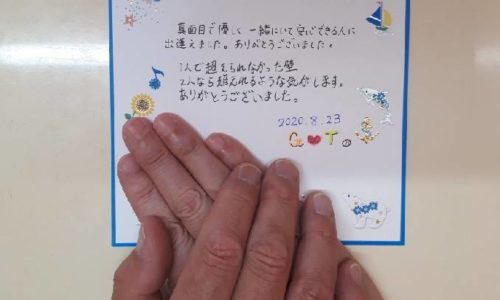 真面目で優しく一緒にいて安心できる人に
出逢えました。ありがとうございました。
1人で超えられなかった壁
2人なら超えれるような気がします。
ありがとうございました。
2020.8.23
G♥T